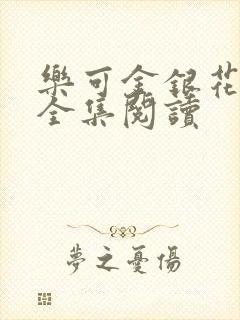 樂可金銀花
全集閱讀
夢之憂傷